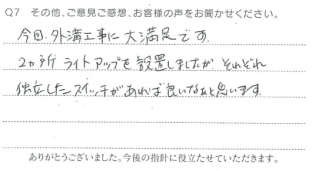 Q7 その他、ご意見ご感想、お客様の声をお聞かせください。
今回、外溝工事に大満足です。
2ヵ所 ライトアップを設置しましたが それぞれ
独立したスイッチがあれば良いなぁと思います
ありがとうございました。今後の指針に役立たせていただきます。